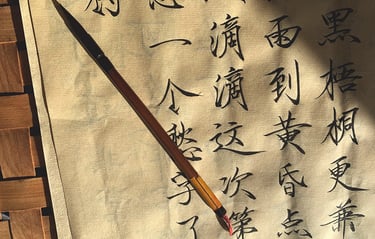 黑梧桐更兼
雨到黄昏点
滴滴这次第
一个愁字了